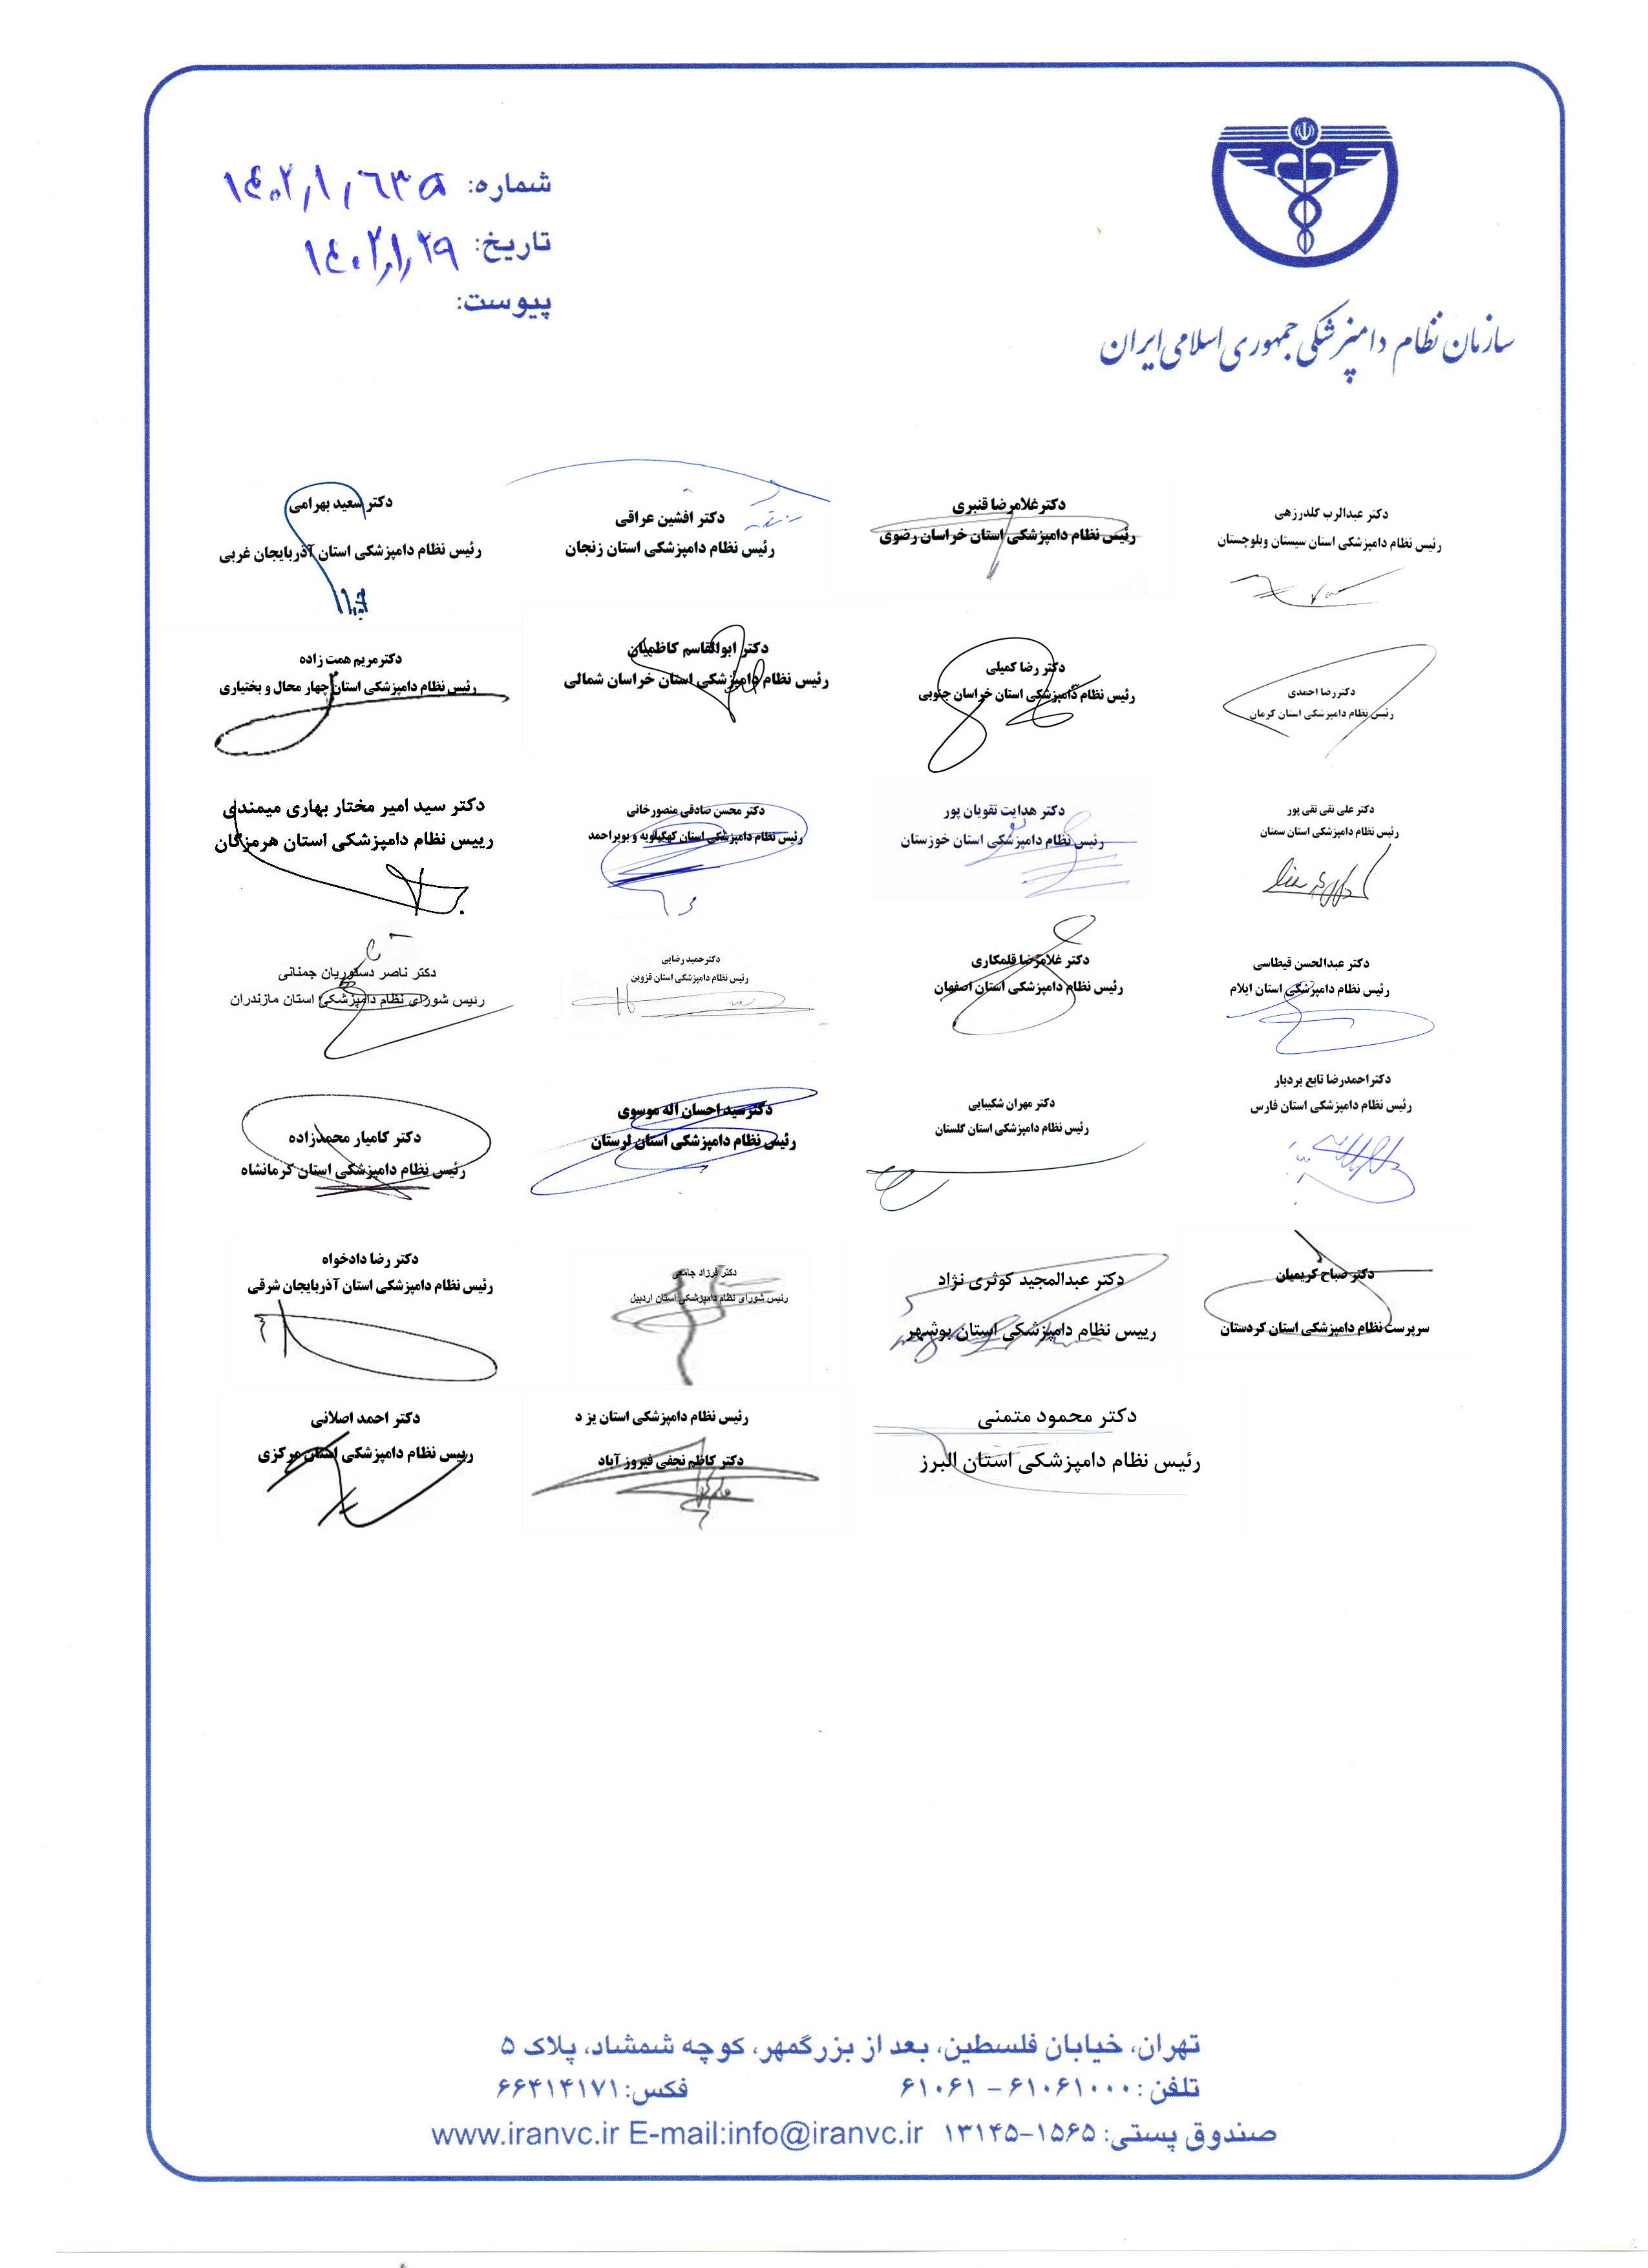 سازمان نظام دامپزشکی جمهوری اسلامی ایران
شماره: ۱۴۰۲/۱/۶۳۵
تاریخ: ۱۴۰۲/۱/۲۹
پیوست:
دکتر عبدالرب کلدرزهی
رئیس نظام دامپزشکی استان سیستان وبلوچستان
دکترغلامرضا قنبری
رئیس نظام دامپزشکی استان خراسان رضوی
دکتر افشین عراقی
رئیس نظام دامپزشکی استان زنجان
دکتر سعید بهرامی
رئیس نظام دامپزشکی استان آذربایجان غربی
دکتررضا احمدی
رئیس نظام دامپزشکی استان کرمان
دکتر رضا کمیلی
رئیس نظام دامپزشکی استان خراسان جنوبی
دکتر ابوالقاسم کاظمیان
رئیس نظام دامپزشکی استان خراسان شمالی
دکترمریم همت زاده
رئیس نظام دامپزشکی استان چهار محال و بختیاری
دکتر علی نقی تقی پور
رئیس نظام دامپزشکی استان سمنان
دکتر هدایت تقویان پور
رئیس نظام دامپزشکی استان خوزستان
دکتر محسن صادقی منصورخانی
رئیس نظام دامپزشکی استان کهگیلویه و بویراحمد
دکتر سید امیر مختار بهاری میمندی
رییس نظام دامپزشکی استان هرمزگان
دکتر عبدالحسن قیطاسی
رئیس نظام دامپزشکی استان ایلام
دکتر غلامرضا قلمکاری
رئیس نظام دامپزشکی استان اصفهان
دکترحمید رضایی
رئیس نظام دامپزشکی استان قزوین
دکتر ناصر دستوریان جمنانی
رئیس شورای نظام دامپزشکی استان مازندران
دکتراحمدرضا تابع بردبار
رئیس نظام دامپزشکی استان فارس
دکتر مهران شکیبایی
رئیس نظام دامپزشکی استان گلستان
دکترسید احسان اله موسوی
رئیس نظام دامپزشکی استان لرستان
دکتر کامیار محمدزاده
رئیس نظام دامپزشکی استان کرمانشاه
دکتر صباح کریمیان
سرپرست نظام دامپزشکی استان کردستان
دکتر عبدالمجید کوثری نژاد
رییس نظام دامپزشکی استان بوشهر
دکتر فرزاد جامعی
رئیس شورای نظام دامپزشکی استان اردبیل
دکتر رضا دادخواه
رئیس نظام دامپزشکی استان آذربایجان شرقی
دکتر محمود متمنی
رئیس نظام دامپزشکی استان البرز
رئیس نظام دامپزشکی استان یزد
دکتر کاظم نجفی فیروز آباد
دکتر احمد اصلانی
رییس نظام دامپزشکی استان مرکزی
تهران، خیابان فلسطین، بعد از بزرگمهر، کوچه شمشاد، پلاک ۵
تلفن: ۶۱۰۶۱۰۰۰ - ۶۱۰۶۱ فکس: ۶۶۴۱۴۱۷۱
صندوق پستی: ۱۵۶۵-۱۳۱۴۵ www.iranvc.ir E-mail:info@iranvc.ir